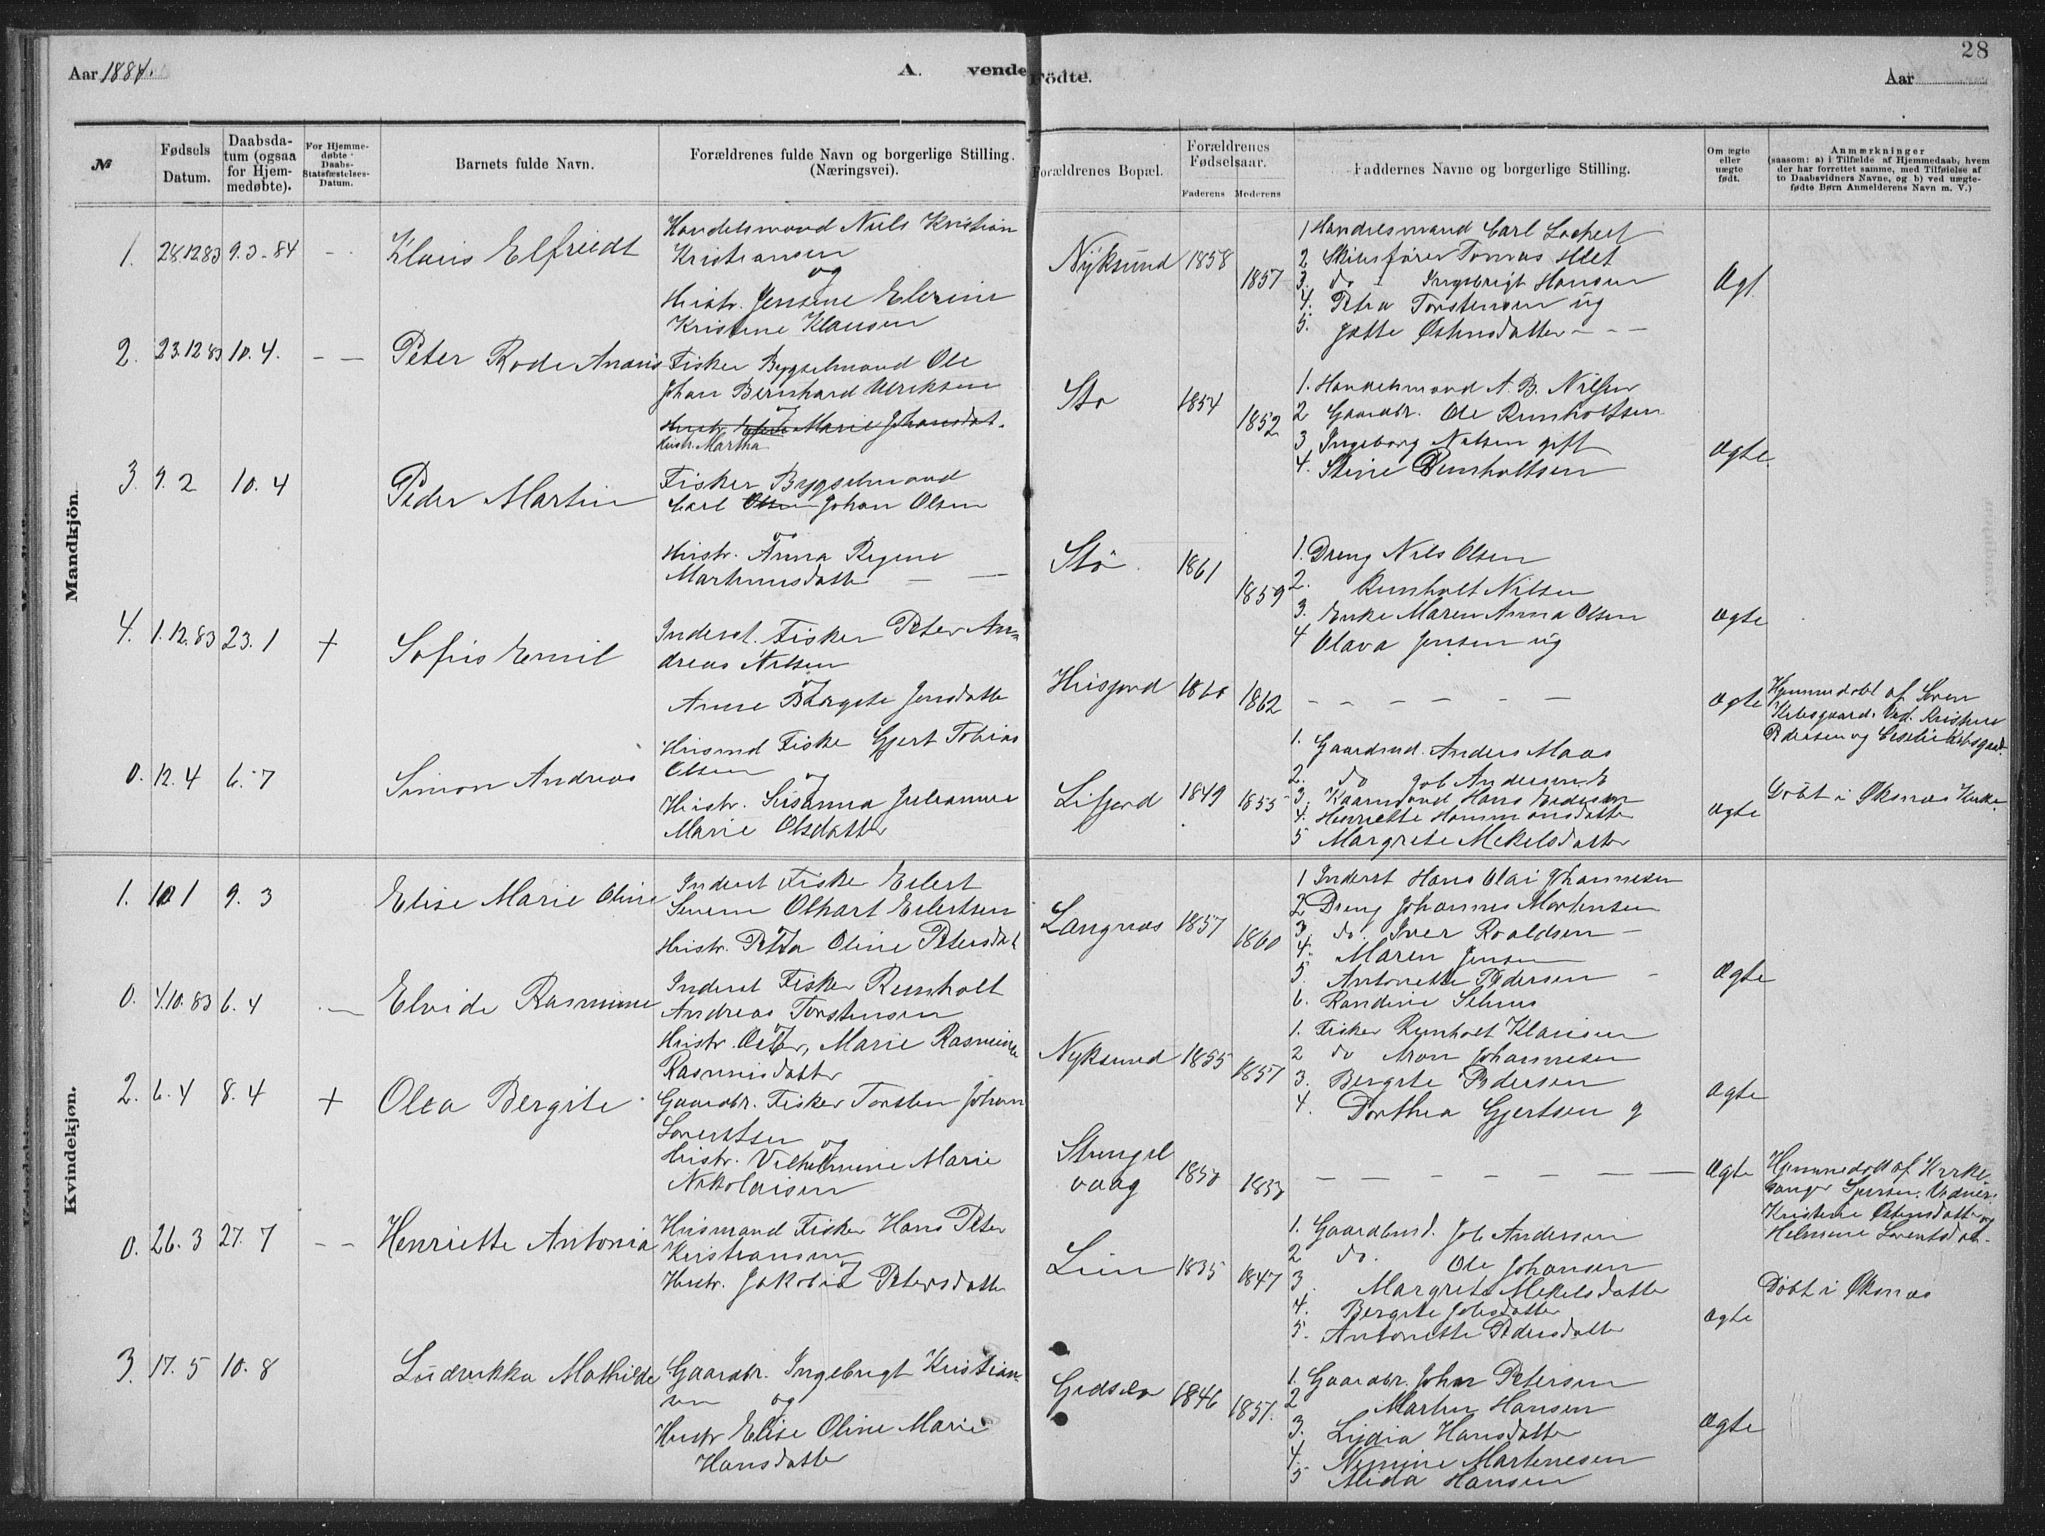 Aar 1884.
A. vende
Födte.
28
Aar
№
Fødsels Datum.
Daabsda-
tum (ogsaa
for Hjem-
medøbte).
For Hjemme-
døbte
Daabs-
Statsfæstelses-
Datum.
Barnets fulde Navn.
Forældrenes fulde Navn og borgerlige Stilling.
(Næringsvei).
Forældrenes Bopæl.
Forældrenes
Fødselsaar.
Faderens Moderens
Faddernes Navne og borgerlige Stilling.
Om ægte
eller
uægte
født.
Anmærkninger
(saasom: a) i Tilfælde af Hjemmedaab, hvem
der har forrettet samme, med Tilføielse af
to Daabsvidners Navne, og b) ved uægte-
fødte Børn Anmelderens Navn m. V.)
Mandkjön.
1. 28.12.83 9.3-84 - - Klaus Elfriedt
Handelsmand Niels Kristian
Kristiansen
og
Hustr. Jensine Elerine
Kristine Klausen
Nyksund 1858 1857
1 Handelsmand Carl Lockert
2 Skibsfører Tomas
3. do - Ingebrigt Hansen
4. Petra Torstensen ug
5. Jøtte - - -
Ægt.
2. 23.12.83 10.4. - - Peter Rode Ananias
Fisker Bygselmand Ole
Johan Bernhard Ulriksen
Hustr. Marie Johansdat.
Hustr. Martha
Stø 1854 1852
1. Handelsmand A. B. Nilsen
2 Gaardbr. Ole Reinholtsen
3 Ingeborg Nilsen gift
4. Stine Reinholtsen
Ægte.
3. 9.2 10.4 Peder Martin
Fisker Bygselmand
Carl Olsen Johan Olsen
Hustr. Anna Regine
Martinusdatter - -
Stö. 1861 1859
1. Dreng Nils Olsen
2. Reinholt Nilsen
3. Enke Maren Anna Olsen
4 Olava Jensen ug
Ægte
4. 1.12.83 23.1 + Sofus Emil
Inderst. Fisker Peter An-
dreas Nilsen
Anne Margrete Jensdatter
Husfjord 1860 1862
- - - - - -
Ægte
Hjemmedøbt af Søren
Kibsgaard. Vid. Kristine
Pedersen og Kibsgaard.
0. 12.4 6.7 Simon Andreas
Husmd Fisker Gjert Tobias
Olsen
Hustr. Susanna Julianne
Marie Olsdatter
Lifjord 1849 1855
1. Gaardmd. Anders Maas
2. do Job Andersen E
3. Kaarmand Hans
4. Henriette Hammonsdatter
5 Margrete Mekelsdatter
Ægte
Døbt i Øksnæs Kirke
Kvindekjøn.
1. 10.1 9.3 Elise Marie Oline
Inderst Fisker Eilert
Severin Olhart Eilertsen
Hustr. Petra Oline Petersdat
Langnæs 1857 1860
1 Inderst Hans Olai Johannesen
2 Dreng Johannes Mortensen
3. do. Iver Roaldsen -
4. Maren Jensen
5. Antonette Pedersen -
6. Randine
Ægte
0. 4.10.83 6.4 - Elvide Rasmine
Inderst Fisker Reinholt
Andreas Torstensen
Hustr. Marie Rasmine
Rasmusdatter
Nyksund 1855 1857
1. Fisker Reinholt Klausen
2 do Aron Johannesen
3. Bergite Pedersen
4. Dorthea Gjertsen g
Ægte
2. 6.4 8.4 + Olea Bergite
Gaardbr. Fisker Torsten Johan
Lorentsen
og
Hustr. Vilhelmine Marie
Nikolaisen
Strengel
vaag 1850 1838
- - - - - -
Ægte
Hjemmedøbt af Kirke
sanger Vidner.
Kristine Østensdatter og
Helmine Lorentsdat-
0. 26.3 27.7 - - Henriette Antonia
Husmand Fisker Hans Peter
Kristiansen
Hustr. Jakobia Petersdatter
Lien 1835 1847
1. Gaardmd. Job Andersen
2 do. Ole Johansen
3. Margrete Mekelsdatter
4. Bergite Jobsdatter
5. Antonette Pedersdatter
Ægte
Døbt i Øksnæs
3. 17.5 10.8 Ludvikka Mathilde
Gaardbr. Ingebrigt Kristian-
sen og
Hustr Elise Oline Marie
Hansdatter
Gidsø 1846 1857.
1. Gaardbr. Johan Petersen
2 Martin Hansen
3. Lydia Hansdatter
4. Martinesen
5 Alida Hansen
Ægte